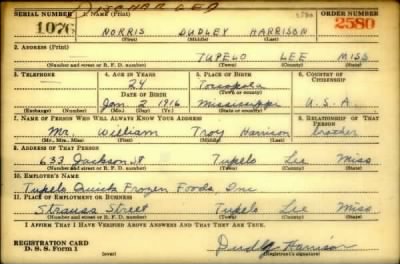 DISCHARGED
SERIAL NUMBER 1. NAME (Print) ORDER NUMBER
1076 NORRIS DUDLEY HARRISON 2580
(First) (Middle) (Last)
2. ADDRESS (Print)
TUPELO LEE MISS
(Number and street or R. F. D. number) (Town) (County) (State)
3. TELEPHONE 4. AGE IN YEARS 5. PLACE OF BIRTH 6. COUNTRY OF CITIZENSHIP
24 Toccopola
DATE OF BIRTH (Town or county)
Jan 2 1916 Mississippi U.S.A.
(Exchange) (Number) (Mo.) (Day) (Yr.) (State or country)
7. NAME OF PERSON WHO WILL ALWAYS KNOW YOUR ADDRESS 8. RELATIONSHIP OF THAT PERSON
Mr. William Troy Harrison brother
(Mr., Mrs., Miss) (First) (Middle) (Last)
9. ADDRESS OF THAT PERSON
633 Jackson St Tupelo Lee Miss
(Number and street or R. F. D. number) (Town) (County) (State)
10. EMPLOYER'S NAME
Tupelo Quick Frozen Foods Inc
11. PLACE OF EMPLOYMENT OR BUSINESS
Strauss Street Tupelo Lee Miss
(Number and street or R. F. D. number) (Town) (County) (State)
I AFFIRM THAT I HAVE VERIFIED ABOVE ANSWERS AND THAT THEY ARE TRUE.
REGISTRATION CARD
D. S. S. Form 1 (over) Dudley Harrison
(Registrant's signature)